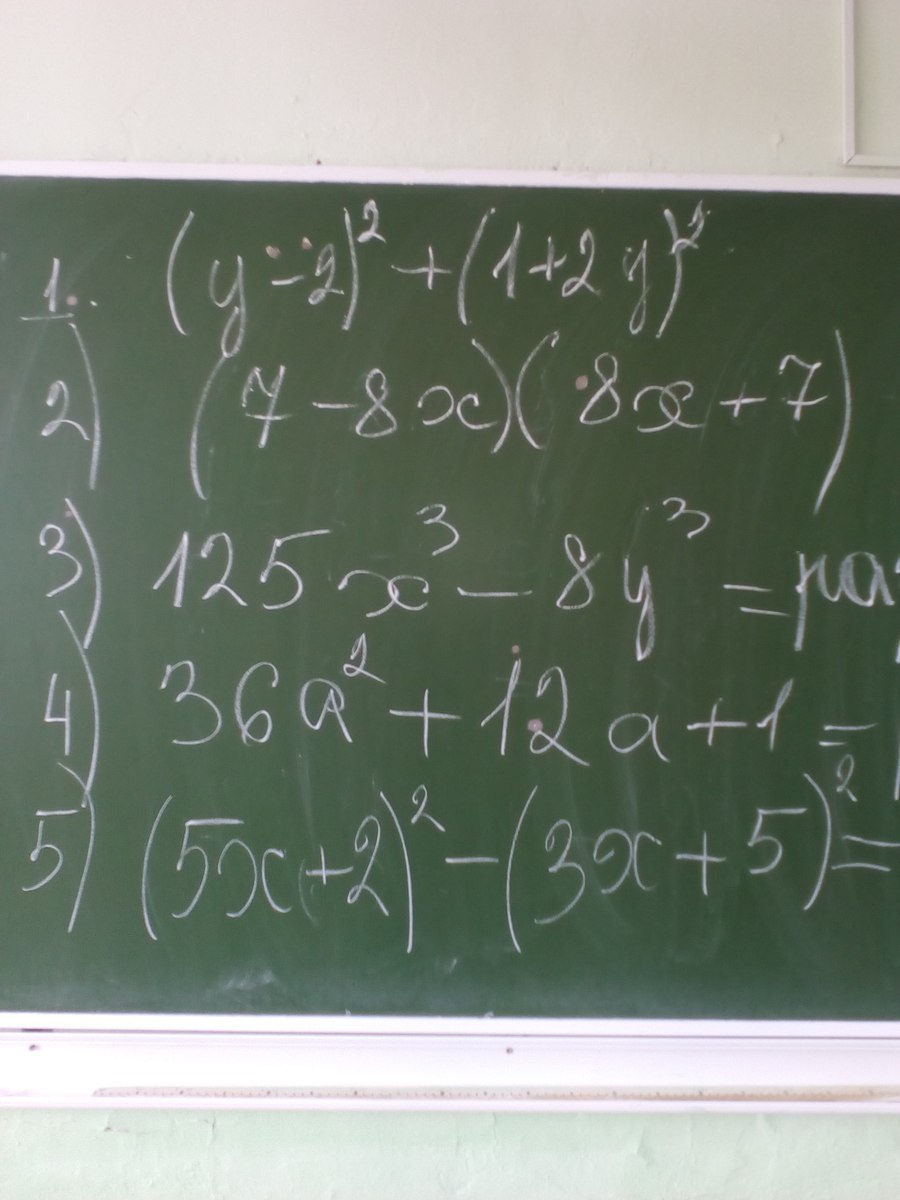 1. (y-2)² + (1+2y)²
2) (7-8x)(8x+7)
3) 125x³ - 8y³ =
4) 36a² + 12a + 1 =
5) (5x+2)² - (3x+5)² =